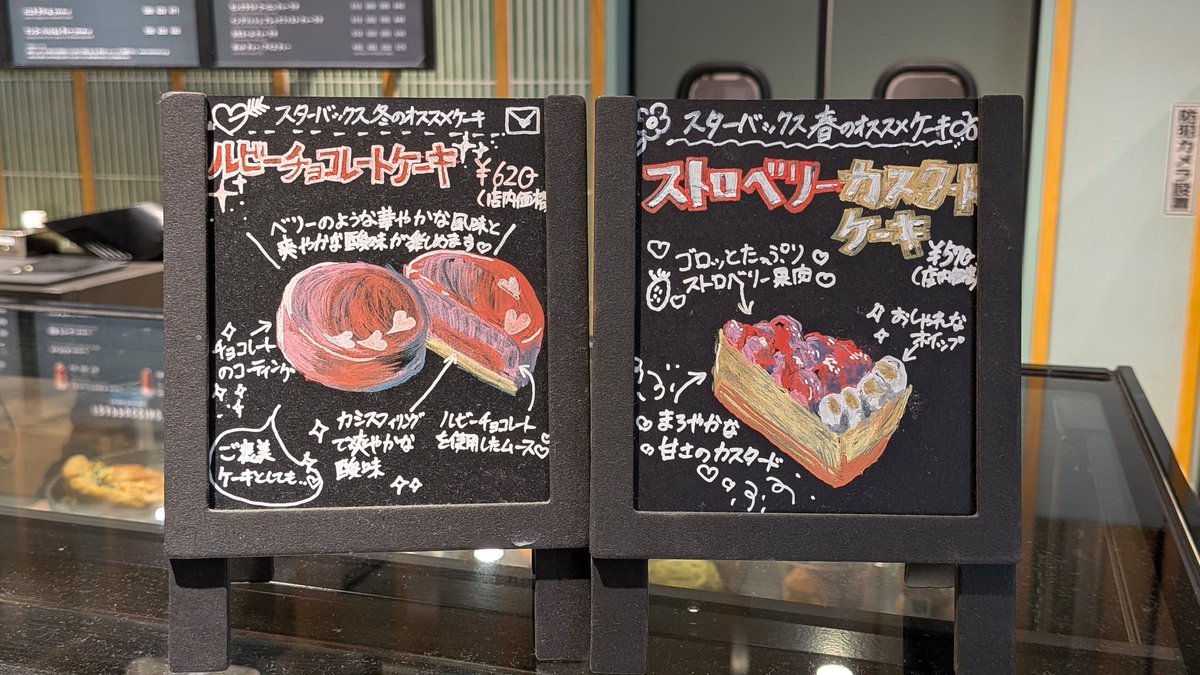 スターバックス 冬のオススメケーキ
ルビーチョコレートケーキ
¥620
(店内価格
ベリーのような華やかな風味と
爽やかな酸味が楽しめます♡
チョコレート
のコーティング
カシスフィリング
で爽やかな
酸味
ルビーチョコレート
を使用したムース♡
ご褒美
ケーキとしても..♡
スターバックス 春のオススメケーキ
ストロベリーカスタード
ケーキ
¥570
(店内価格
ゴロッとたっぷり
ストロベリー果肉
おしゃれな
ホイップ
まろやかな
甘さのカスタード
防犯カメラ設置